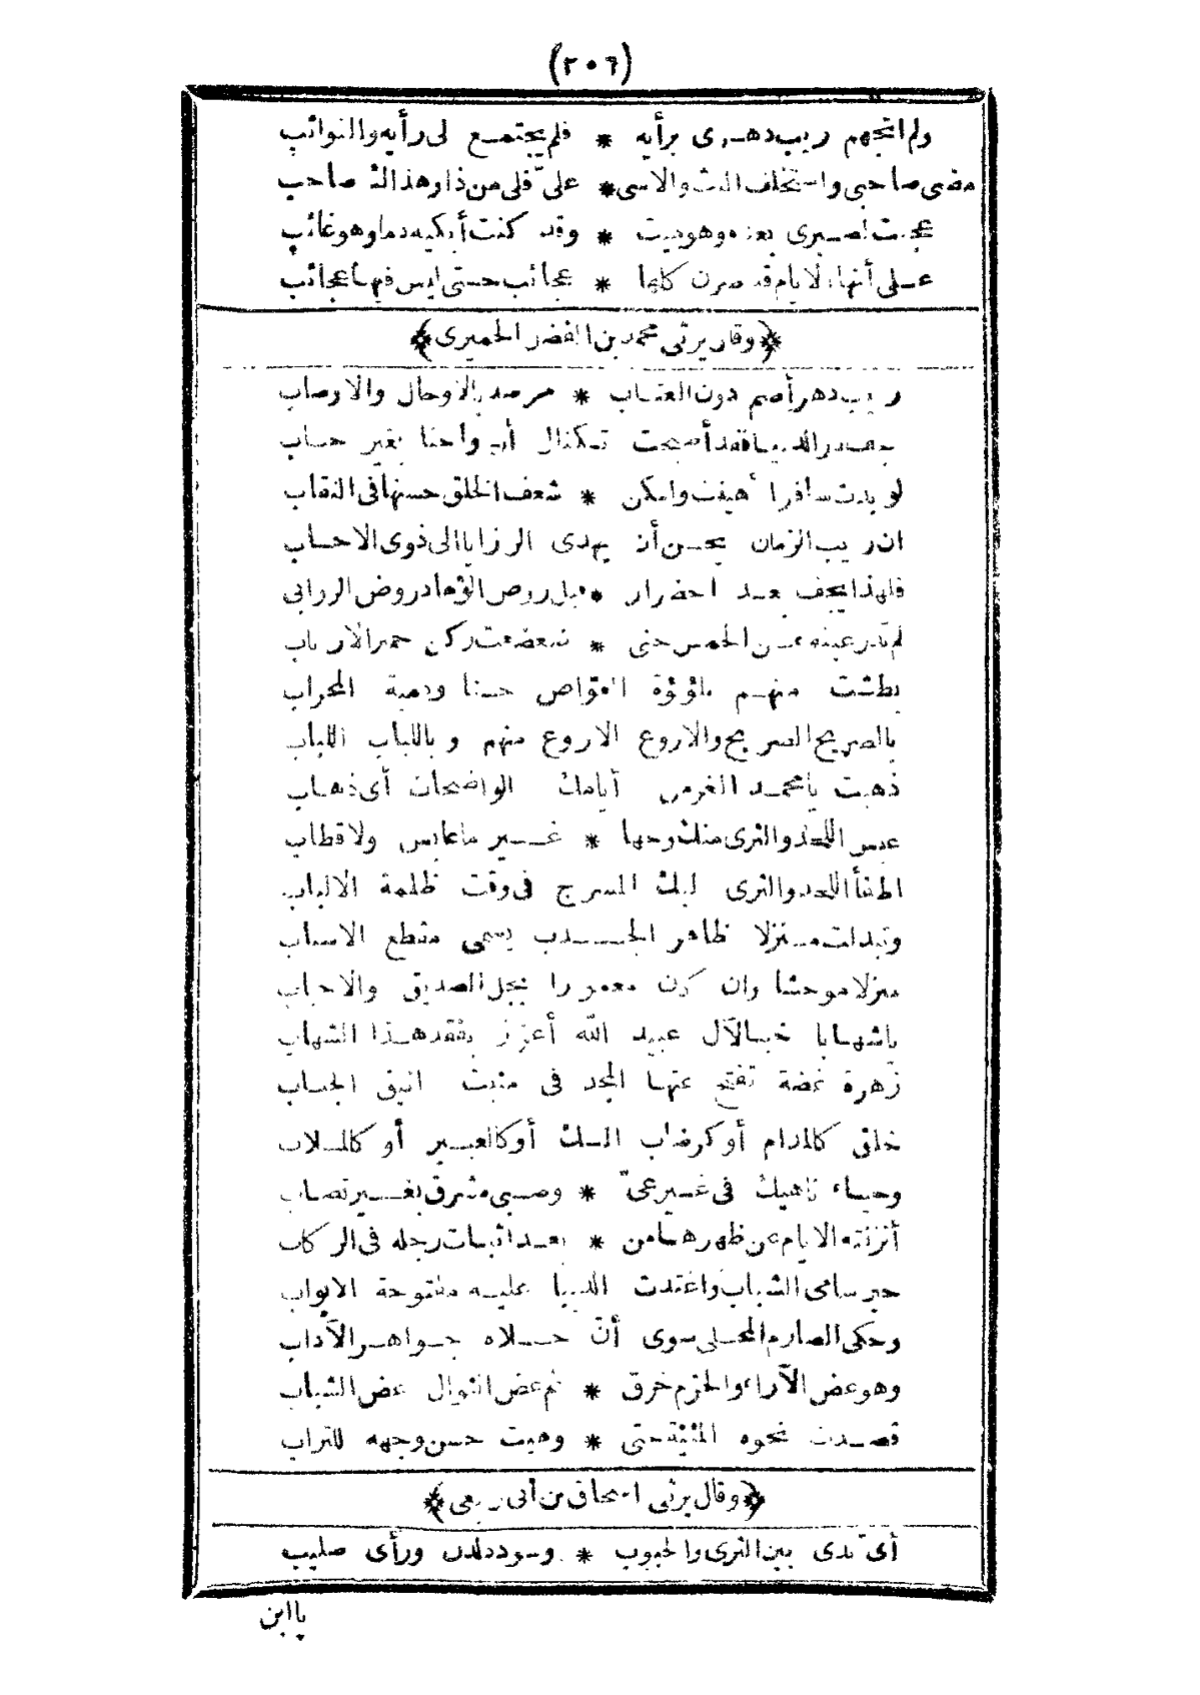 (٢٠٦)
ولم اتجهم ريب دهرى برأيه * فلم يجتمع لى رأيه والنوائب
مضى صاحبى واستخلف البث والاسى * علىّ فلى من ذا وهذاك صاحب
عجبت لصبرى بعده وهوميت * وقد كنت أبكيه دما وهو غائب
على أنها الايام قد صرن كلها * عجائب حتى ليس فيها عجائب
﴿وقال يرثى محمد بن الفضل الحميرى﴾
ريب دهر أصم دون العتاب * مرصد بالاوجال والاوصاب
جف در الدنيا فقد أصبحت تكتال أرواحنا بغير حساب
لو بدت سافرا أهينت ولكن * شعف الخلق حسنها فى النقاب
ان ريب الزمان يحسن أن يهدى الرزايا الى ذوى الاحساب
فلهذا يجف بعد اخضرار * قبل روض الوهاد روض الروابى
لم تدر عينه عن الحمس حتى * ضعضعت ركن حمير الارباب
بطشت منهم بلؤلؤة الغوّاص حسنا ودمية المحراب
بالصريح الصريح والاروع الاروع منهم وباللباب اللباب
ذهبت يا محمد الغر من أيامك الواضحات أى ذهاب
عبس اللحد والثرى منك وجها * غير ما عابس ولا قطاب
اطفأ اللحد والثرى لبك المسرج فى وقت ظلمة الالباب
وتبدلت منزلا ظاهر الجدب يسمى مقطع الاسباب
منزلا موحشا وان كان معمورا بجل الصديق والاحباب
ياشهابا خبا لآل عبيد الله أعزز بفقد هذا الشهاب
زهرة غضة تفتح عنها المجد فى منبت انيق الجناب
خلق كالمدام أو كرضاب المسك أو كالعبير أو كالملاب
وحياء ناهيك فى غير عىّ * وصبى مشرق بغير تصاب
أنزلته الايام عن ظهرها من * بعد اثبات رجله فى الركاب
حين سامى الشباب واغتدت الدنيا عليه مفتوحة الابواب
وحكى الصارم المحلى سوى أنّ حلاه جواهر الآداب
وهو غض الآراء والحزم خرق * ثم غض النوال غض الشباب
قصدت نحوه المنيّة حتى * وهبت حسن وجهه للتراب
﴿وقال يرثى اسحاق بن أبى ربعى﴾
أىّ ندى بين الثرى والجبوب * وسودد لدن ورأى صليب
يا ابن